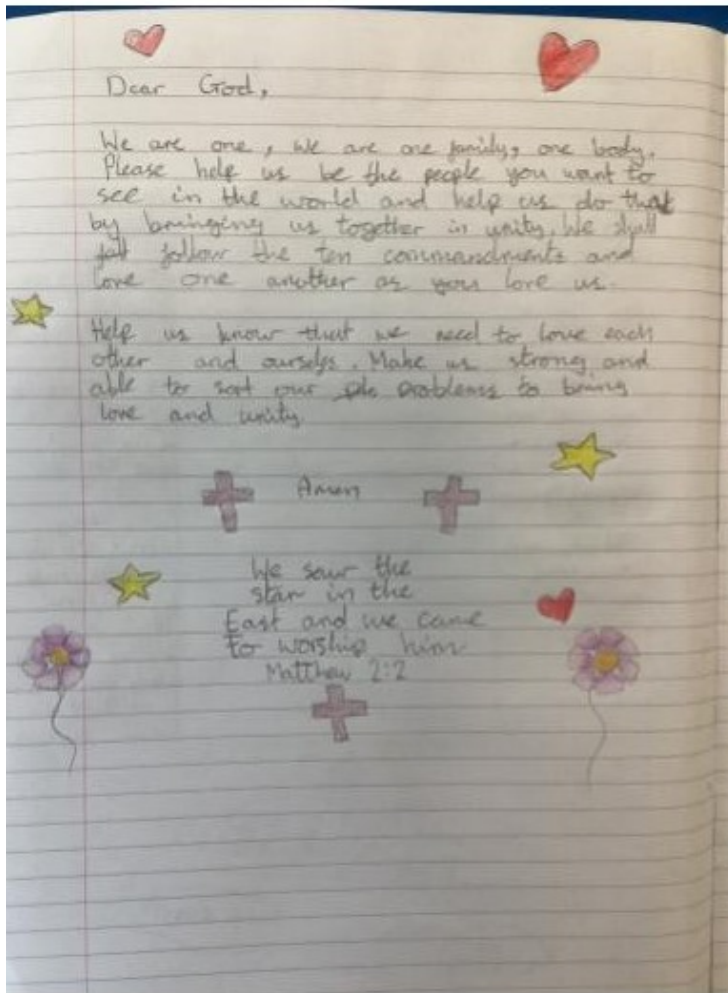 Dear God,
We are one, we are one family, one body.
Please help us be the people you want to
see in the world and help us do that
by bringing us together in unity. We shall
follow the ten commandments and
love one another as you love us.
Help us know that we need to love each
other and ourselfs. Make us strong and
able to sort our problems to bring
love and unity.
Amen
We saw the
star in the
East and we came
to worship him
Matthew 2:2